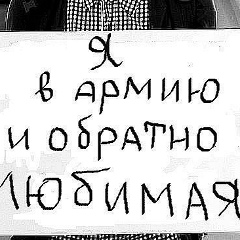 Я
в армию
и обратно
любимая